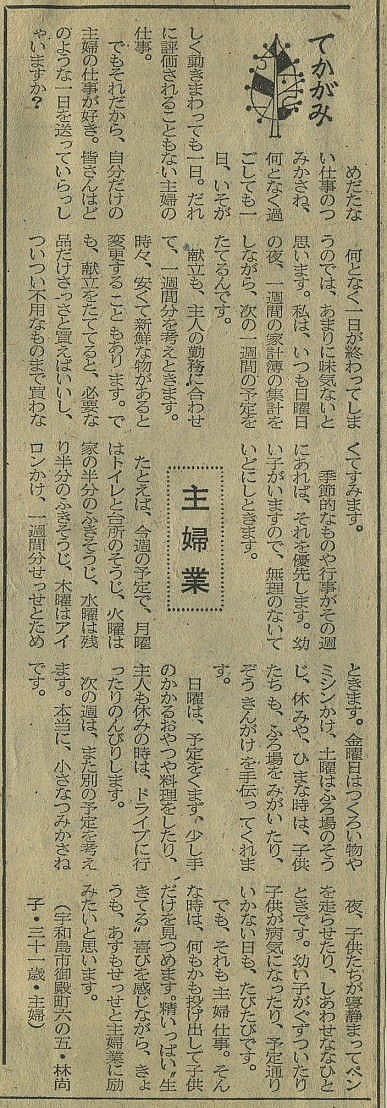 てかがみ
主婦業
めだたな
い仕事のつ
みかさね、
何となく過
ごしても一
日、いそが
しく動きまわっても一日。だれ
に評価されることもない主婦の
仕事。
でもそれだから、自分だけの
主婦の仕事が好き。皆さんはど
のような一日を送っていらっし
ゃいますか？
何となく一日が終わってしま
うのでは、あまりに味気ないと
思います。私は、いつも日曜日
の夜、一週間の家計簿の集計を
しながら、次の一週間の予定を
たてるんです。
献立も、主人の勤務に合わせ
て、一週間分を考えときます。
時々、安くて新鮮な物があると
変更することもあります。で
も、献立をたててると、必要な
品だけさっさと買えばいいし、
ついつい不用なものまで買わな
くてすみます。
季節的なものや行事がその週
にあれば、それを優先します。幼
い子がいますので、無理のないて
いどにしときます。
たとえば、今週の予定で、月曜
はトイレと台所のそうじ、火曜は
家の半分のふきそうじ、水曜は残
り半分のふきそうじ、木曜はアイ
ロンかけ、一週間分せっせとため
ときます。金曜日はつくろい物や
ミシンかけ、土曜はふろ場のそう
じ、休みや、ひまな時は、子供
たちも、ふろ場をみがいたり、
ぞうきんがけを手伝ってくれま
す。
日曜は、予定をくまず、少し手
のかかるおやつや料理をしたり、
主人も休みの時は、ドライブに行
ったりのんびりします。
次の週は、また別の予定を考え
ます。本当に、小さなつみかさね
です。
夜、子供たちが寝静まってペン
を走らせたり、しあわせなひと
ときです。幼い子がぐずついたり
子供が病気になったり、予定通り
いかない日も、たびたびです。
でも、それも主婦仕事。そん
な時は、何もかも投げ出して子供
だけを見つめます。精いっぱい〝生
きてる〟喜びを感じながら、きょ
うも、あすもせっせと主婦業に励
みたいと思います。
（宇和島市御殿町六の五・林尚
子・三十一歳・主婦）